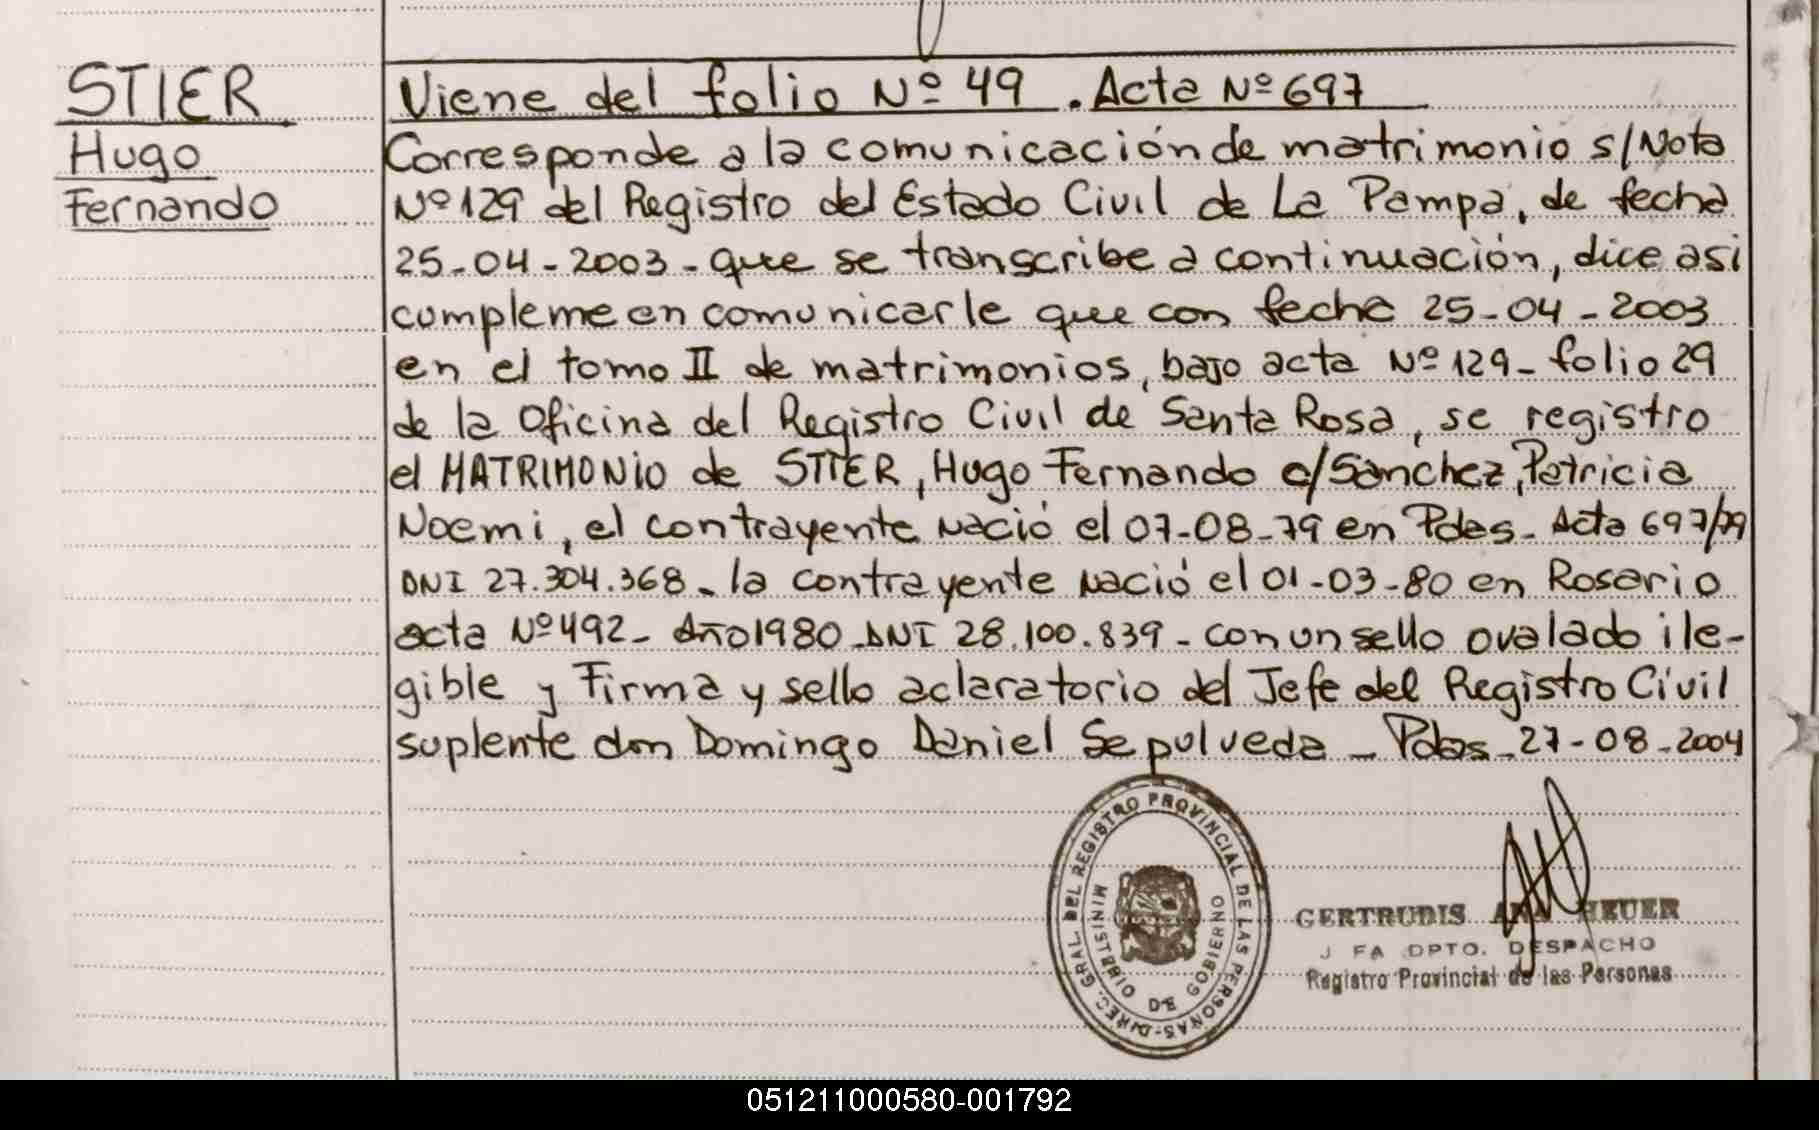 STIER
Hugo
Fernando
Viene del folio Nº 49 . Acta Nº 697
Corresponde a la comunicación de matrimonio s/Nota
Nº 129 del Registro del Estado Civil de La Pampa, de fecha
25-04-2003-que se transcribe a continuación, dice asi
cumpleme en comunicarle que con fecha 25-04-2003
en el tomo II de matrimonios, bajo acta Nº 129- folio 29
de la Oficina del Registro Civil de Santa Rosa, se registro
el MATRIMONIO de STIER, Hugo Fernando c/Sanchez, Patricia
Noemi, el contrayente nació el 07-08-79 en Pdas- Acta 697/79
DNI 27.304.368- la contrayente nació el 01-03-80 en Rosario
acta Nº 492- Año 1980-DNI 28.100.839- con un sello ovalado ile-
gible y Firma y sello aclaratorio del Jefe del Registro Civil
suplente don Domingo Daniel Sepulveda - Pdas-27-08-2004
DIREC. GRAL. DEL REGISTRO PROVINCIAL DE LAS PERSONAS-
MINISTERIO DE GOBIERNO
GERTRUDIS ANA HEUER
J FA DPTO. DESPACHO
Registro Provincial de las Personas
051211000580-001792